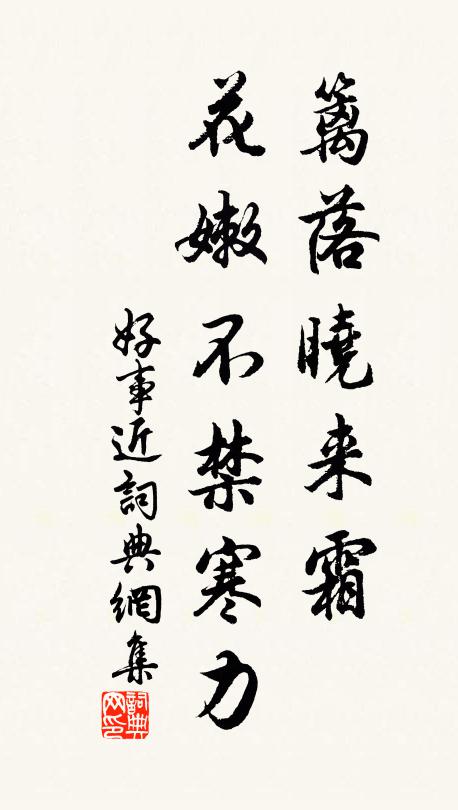 籬落曉来霜
花嫩不禁寒力
好事近詞典網集
詞典
网印